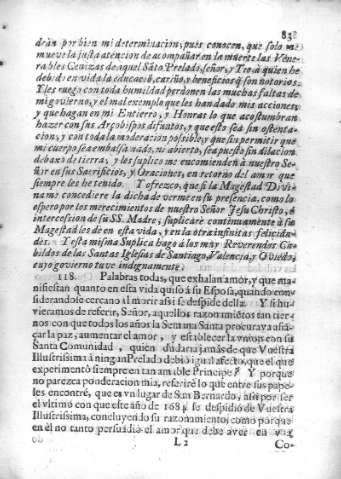 83
dràn por bien mi determinacion, pues conocen, que solo me
mueve la justa atencion de acompañar en la muerte las Vene-
rables Cenizas de aquel Sãto Prelado, señor, y Tio à quien he
debido en vida la educaciõ, cariño, y beneficios q̃ son notorios.
Y les ruego con toda humildad perdonen las muchas faltas de
mi govierno, y el mal exemplo que les han dado mis acciones,
y que hagan en mi Entierro, y Honras lo que acostumbran
hazer con sus Arçobispos difuntos, y que esto seà sin ostenta-
cion, y con toda la moderacion possible, y que sin permitir que
mi cuerpo sea embalsamado, ni abierto, sea puesto sin dilacion
debaxo de tierra; y les suplico me encomienden à nuestro Se-
ñor en sus Sacrificios, y Oraciones, en retorno del amor que
siempre les he tenido. Y ofrezco, que si la Magestad Divi-
na me concediere la dicha de verme en su presencia, como lo
espero por los merecimientos de nuestro Señor Jesu Christo, è
intercession de su SS. Madre, suplicarè continuamente à su
Magestad les dè en esta vida, y en la otra infinitas felicida-
des. Y esta misma Suplica hago à los muy Reverendos Ca-
bildos de las Santas Iglesias de Santiago, Valencia, y Oviedo,
cuyo govierno tuve indignamente.
118. Palabras todas, que exhalan amor, y que ma-
nifiestan quanto en esta vida quiso à su Esposa, quando con-
siderandose cercano al morir assi se despide della. Y si hu-
vieramos de referir, Señor, aquellos razonamiẽtos tan tier-
nos con que todos los años la Semana Santa procurava afiã-
çar la paz, aumentar el amor, y establecer la vnion con su
Santa Comunidad, quien dudaria jamàs de que Vuestra
Illustrissima à ningun Prelado debiò igual afecto, que el que
experimentò siempre en tan amable Principe? Y porque
no parezca ponderacion mia, referirè lo que entre sus pape-
les encontrè, que es vn lugar de San Bernardo, assi por ser
el vltimo con que este año de 168 se despidiò de Vuestra
Illustrissima, concluyendo su razonamiento; como porque
en èl no tanto persuadiò el amor que debe aver en
L 2
Co-